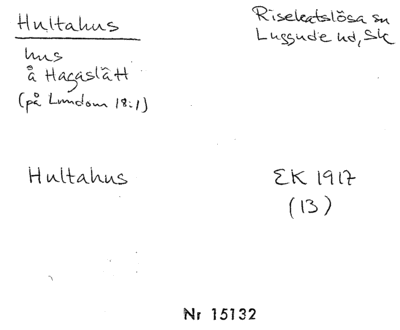 Hultahus
Risekatslösa sn
Luggude hd, Sk
hus
å Hagaslätt
(på Lundom 18:1)
Hultahus
EK 1917
(13)
Nr 15132